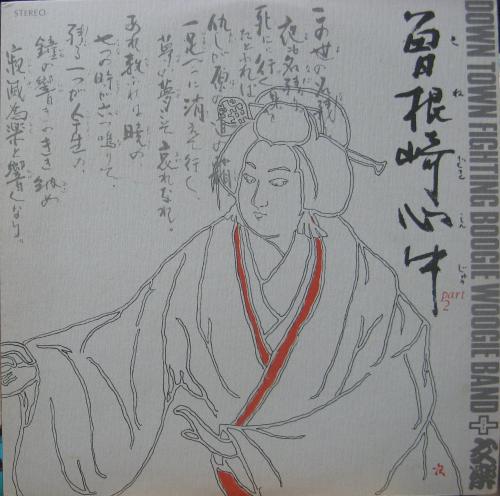 STEREO
DOWN TOWN FIGHTING BOOGIE WOOGIE BAND+文楽
曽根崎心中
part 2
この世の名残
夜も名残
死にに行く身を
たとふれば
仇しが原の道の霜
一足づつに消えて行く
夢の夢こそ哀れなれ。
あれ数ふれば暁の
七つの時が六つ鳴りて、
残る一つが今生の
鐘の響きのきき納め
寂滅為楽と響くなり。